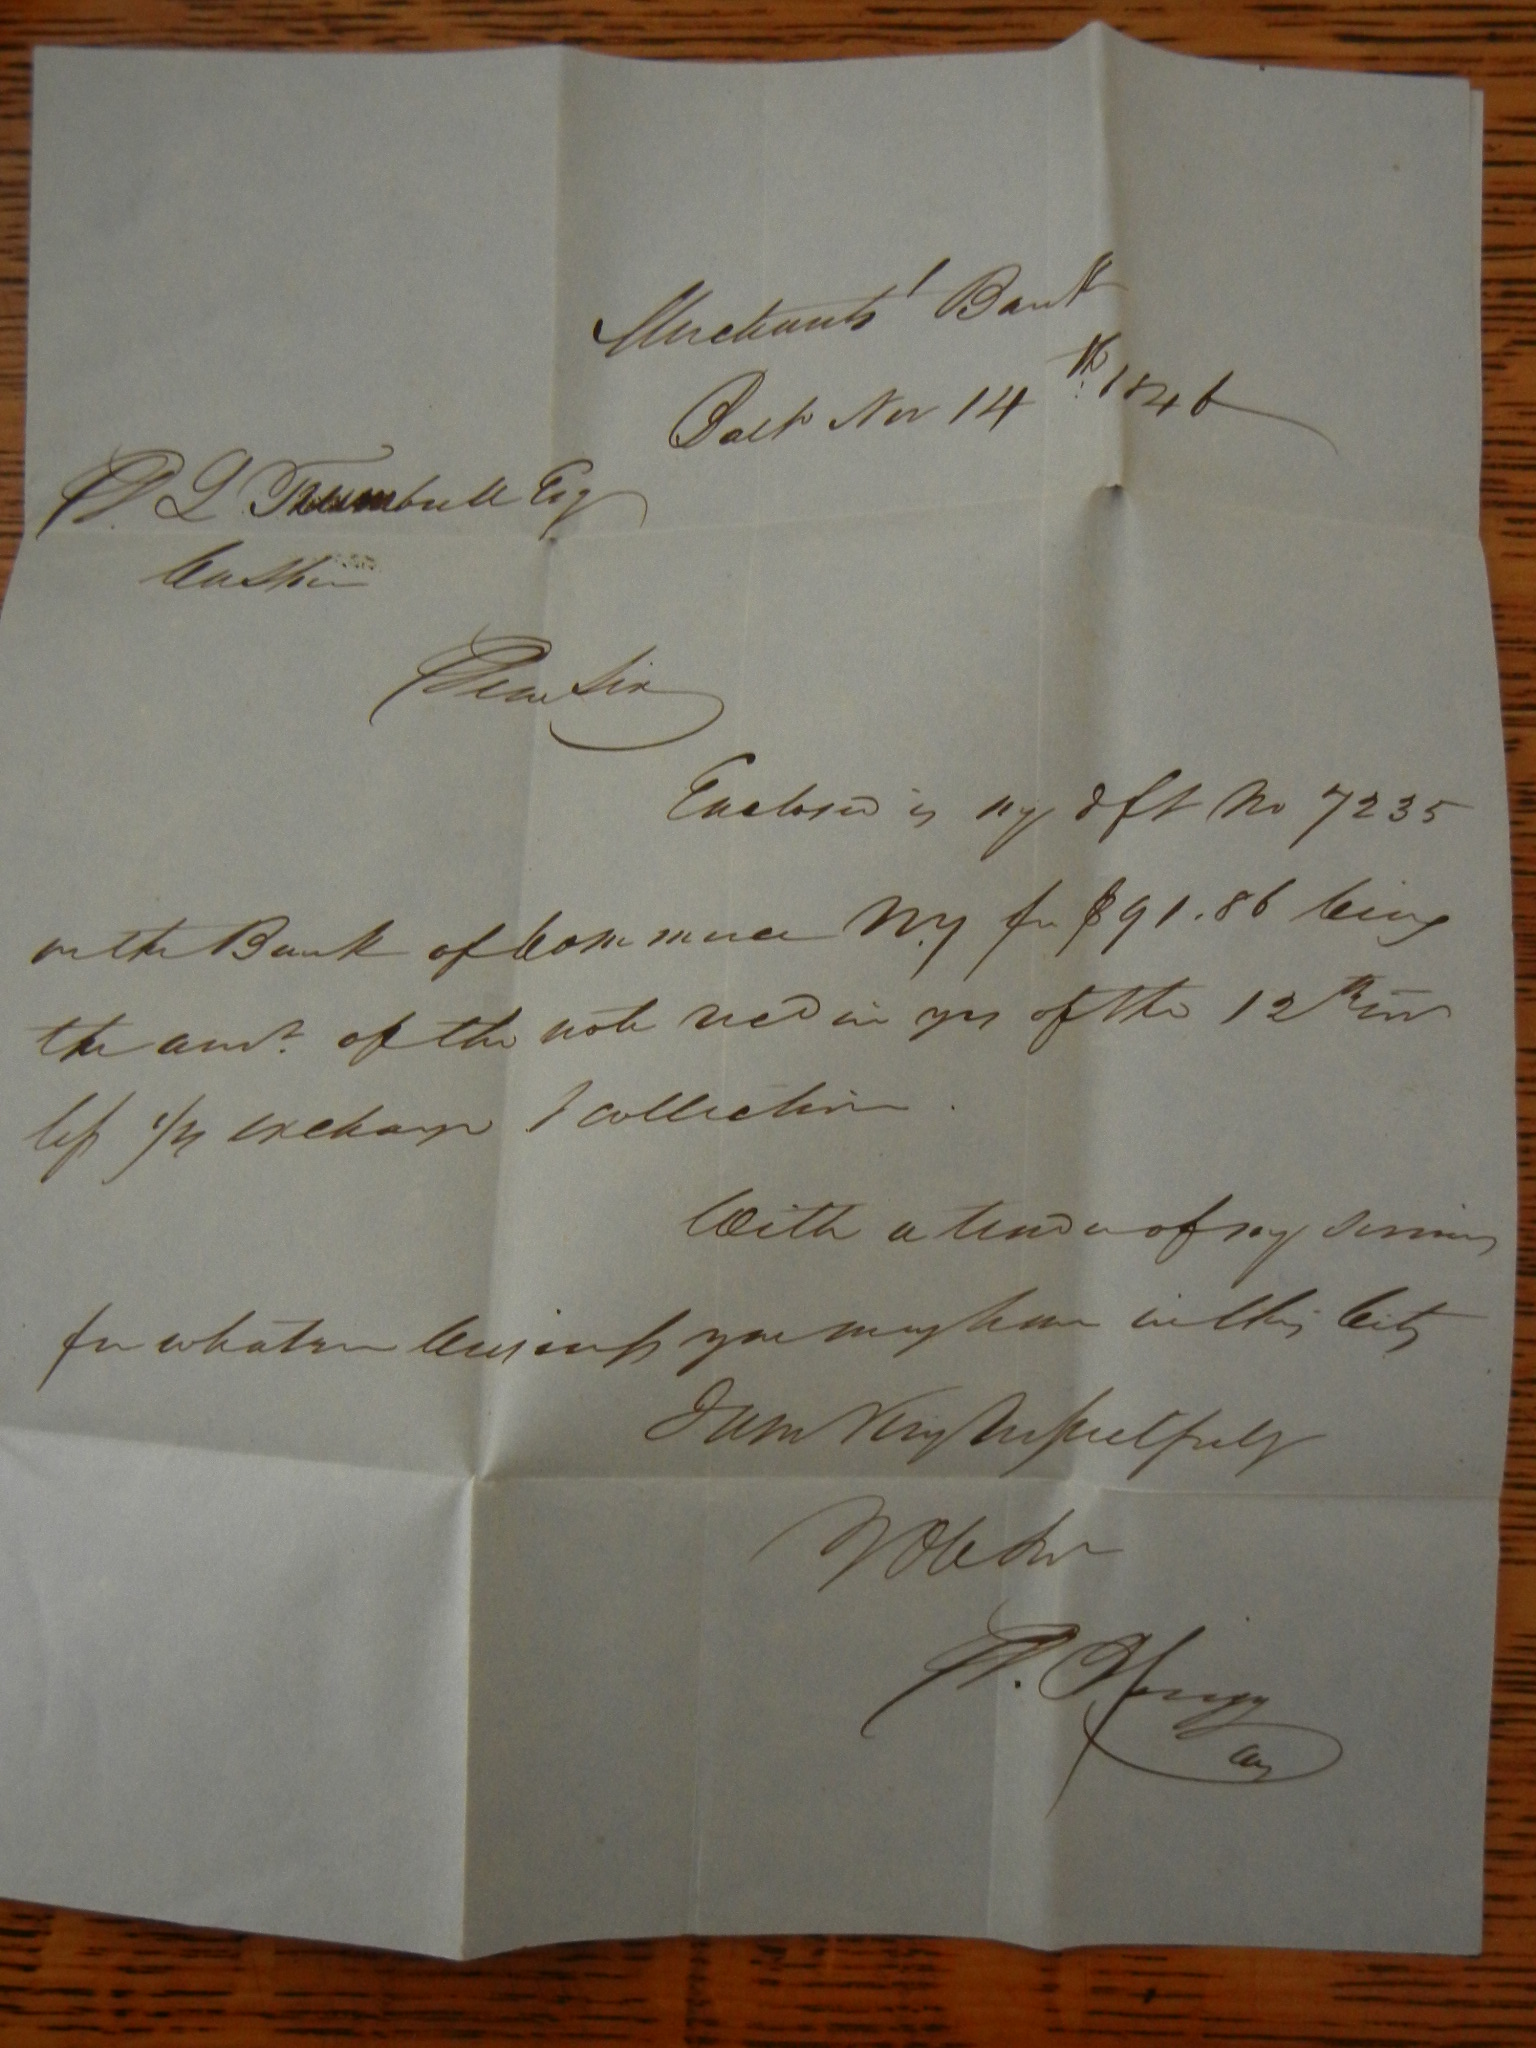 Merchants' Bank
Balt Nov 14th 1846
L Trumbull Esq
Cashier
Dear Sir
Enclosed is my dft No 7235
on the Bank of Commerce N.Y for $91.86 being
the amt. of the note recd in yrs of the 12th inst
less exchange & collection.
With a tender of my services
for whatever business you may have in this City
I am Very Respectfully
Yr Ob Svt